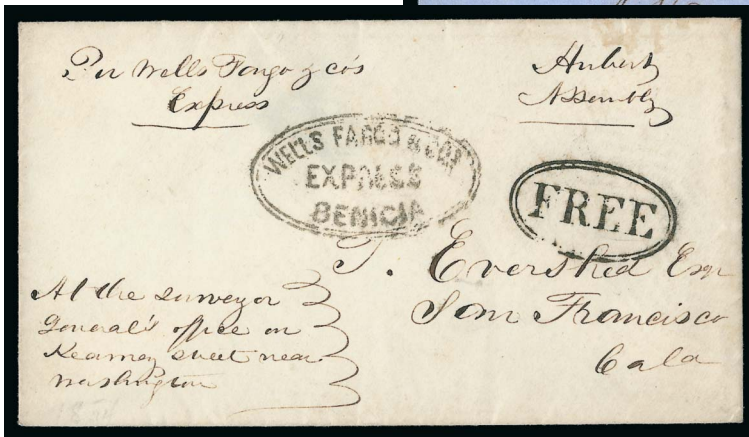 Per Wells Fargo & co's
Express
Hubert
Assembly
WELLS FARGO & COS
EXPRESS
BENICIA
FREE
T. Evershed Esqr
San Francisco
Cala
At the surveyor
General's office on
Kearney street near
washington